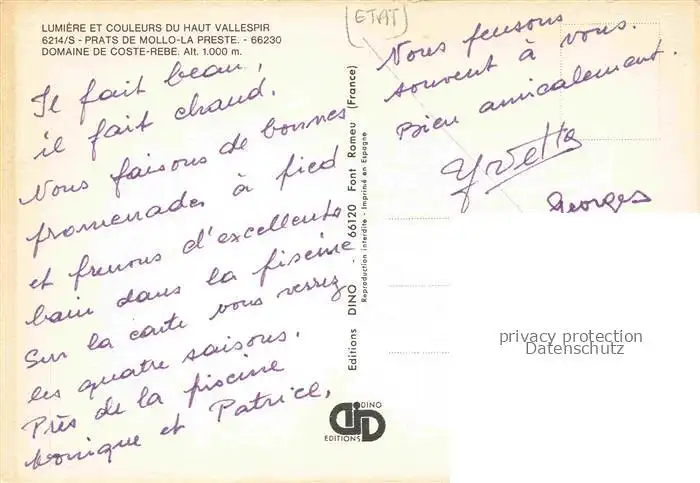 LUMIÈRE ET COULEURS DU HAUT VALLESPIR
6214/S - PRATS DE MOLLO-LA PRESTE. - 66230
DOMAINE DE COSTE-REBE. Alt. 1.000 m.
Il fait beau,
il fait chaud.
Nous faisons de bonnes
promenades à pied
et prenons d'excellents
bain dans la piscine
Sur la carte vous verrez
les quatre saisons.
Près de la piscine
Monique et Patrice,
(ETAT)
Nous pensons
souvent à vous.
Bien amicalement.
Yvette
Georges
Editions DINO - 66120 Font Romeu (France)
Reproduction interdite - Imprimé en Espagne
DINO
EDITIONS
privacy protection
Datenschutz